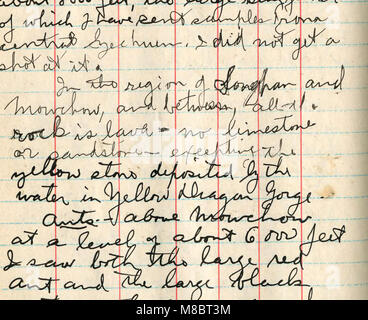 about 8000 feet, the large
of which I have sent samples from
central Szechuen. I did not get a
shot at it.
In the region of Songpan and
Mowchow, and between, all
rock is lava - no limestone
or sandstone excepting the
yellow stone deposited by the
water in Yellow Dragon Gorge.
Ants - above Mowchow
at a level of about 6000 feet
I saw both the large red
ant and the large black
alamy
Image ID: M8BT3M
www.alamy.com